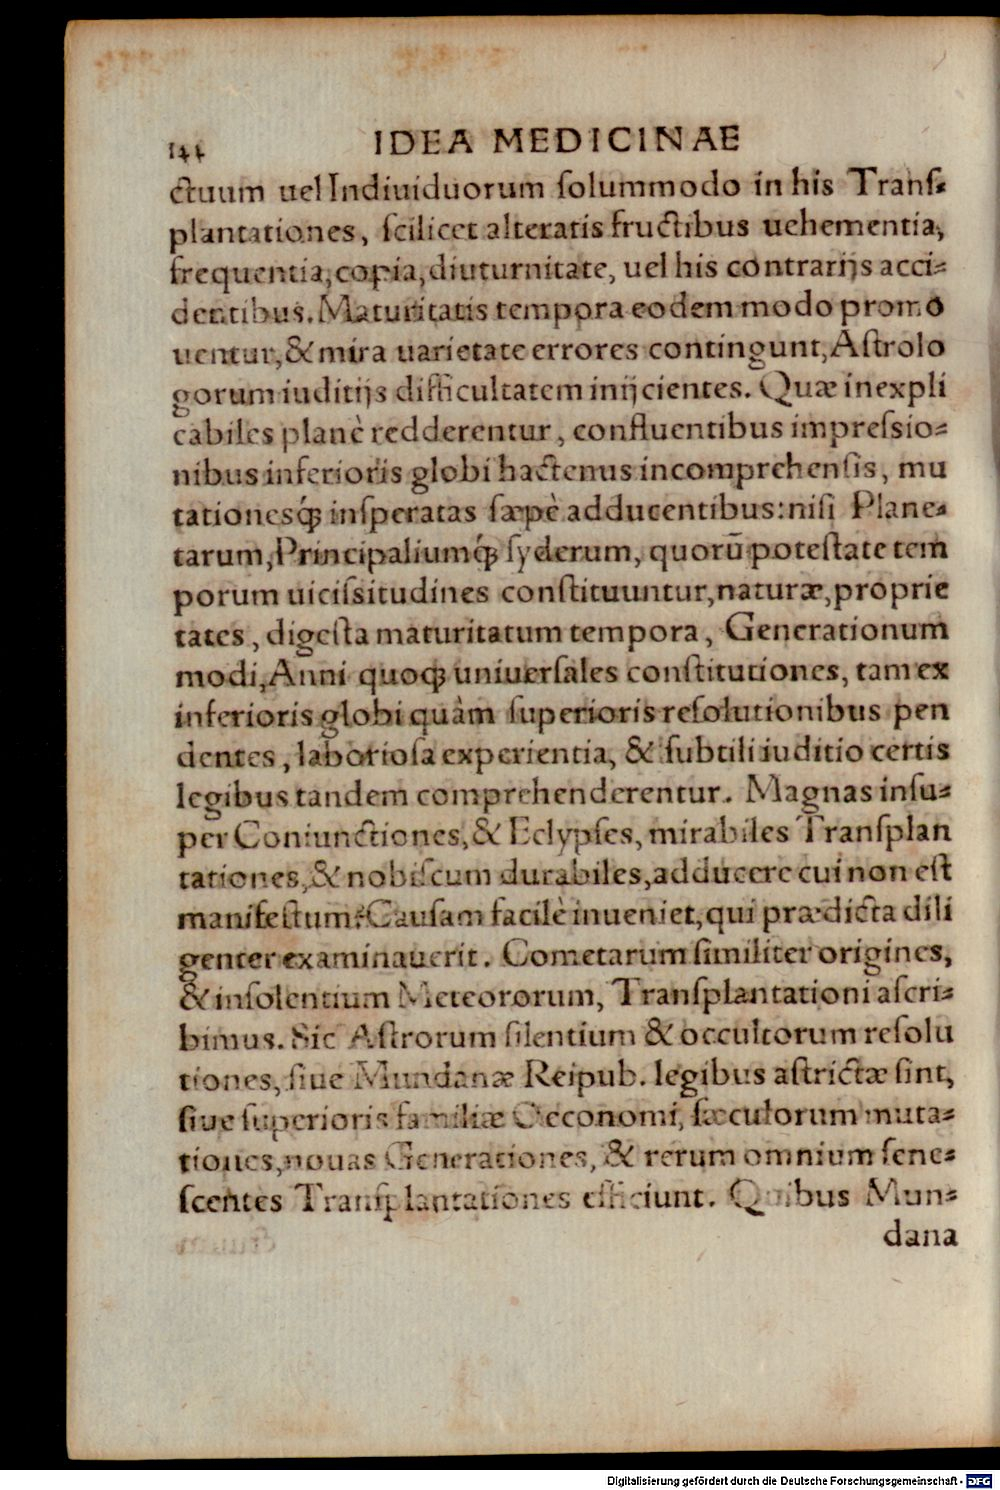 144 IDEA MEDICINAE
ctuum uel Indiuiduorum ſolummodo in his Tranſ-
plantationes, ſcilicet alteratis fructibus uehementia,
frequentia, copia, diuturnitate, uel his contrarijs acci-
dentibus. Maturitatis tempora eodem modo promo
uentur, & mira uarietate errores contingunt, Aſtrolo
gorum iuditijs difficultatem inijcientes. Quæ inexpli
cabiles planè redderentur, confluentibus impreſsio-
nibus inferioris globi hactenus incomprehenſis, mu
tationesq́; inſperatas ſæpè adducentibus: niſi Plane-
tarum, Principaliumq́; ſyderum, quorũ poteſtate tem
porum uiciſsitudines conſtituuntur, naturæ, proprie
tates, digeſta maturitatum tempora, Generationum
modi, Anni quoq; uniuerſales conſtitutiones, tam ex
inferioris globi quàm ſuperioris reſolutionibus pen
dentes, laborioſa experientia, & ſubtili iuditio certis
legibus tandem comprehenderentur. Magnas inſu-
per Coniunctiones, & Eclypſes, mirabiles Tranſplan
tationes, & nobiſcum durabiles, adducere cui non eſt
manifeſtum? Cauſam facilè inueniet, qui prædicta dili
genter examinauerit. Cometarum ſimiliter origines,
& inſolentium Meteororum, Tranſplantationi aſcri-
bimus. Sic Aſtrorum ſilentium & occultorum reſolu
tiones, ſiue Mundanæ Reipub. legibus aſtrictæ ſint,
ſiue ſuperioris familiæ Oeconomi, ſæculorum muta-
tiones, nouas Generationes, & rerum omnium ſene-
ſcentes Tranſplantationes efficiunt. Quibus Mun-
dana
Digitalisierung gefördert durch die Deutsche Forschungsgemeinschaft - DFG